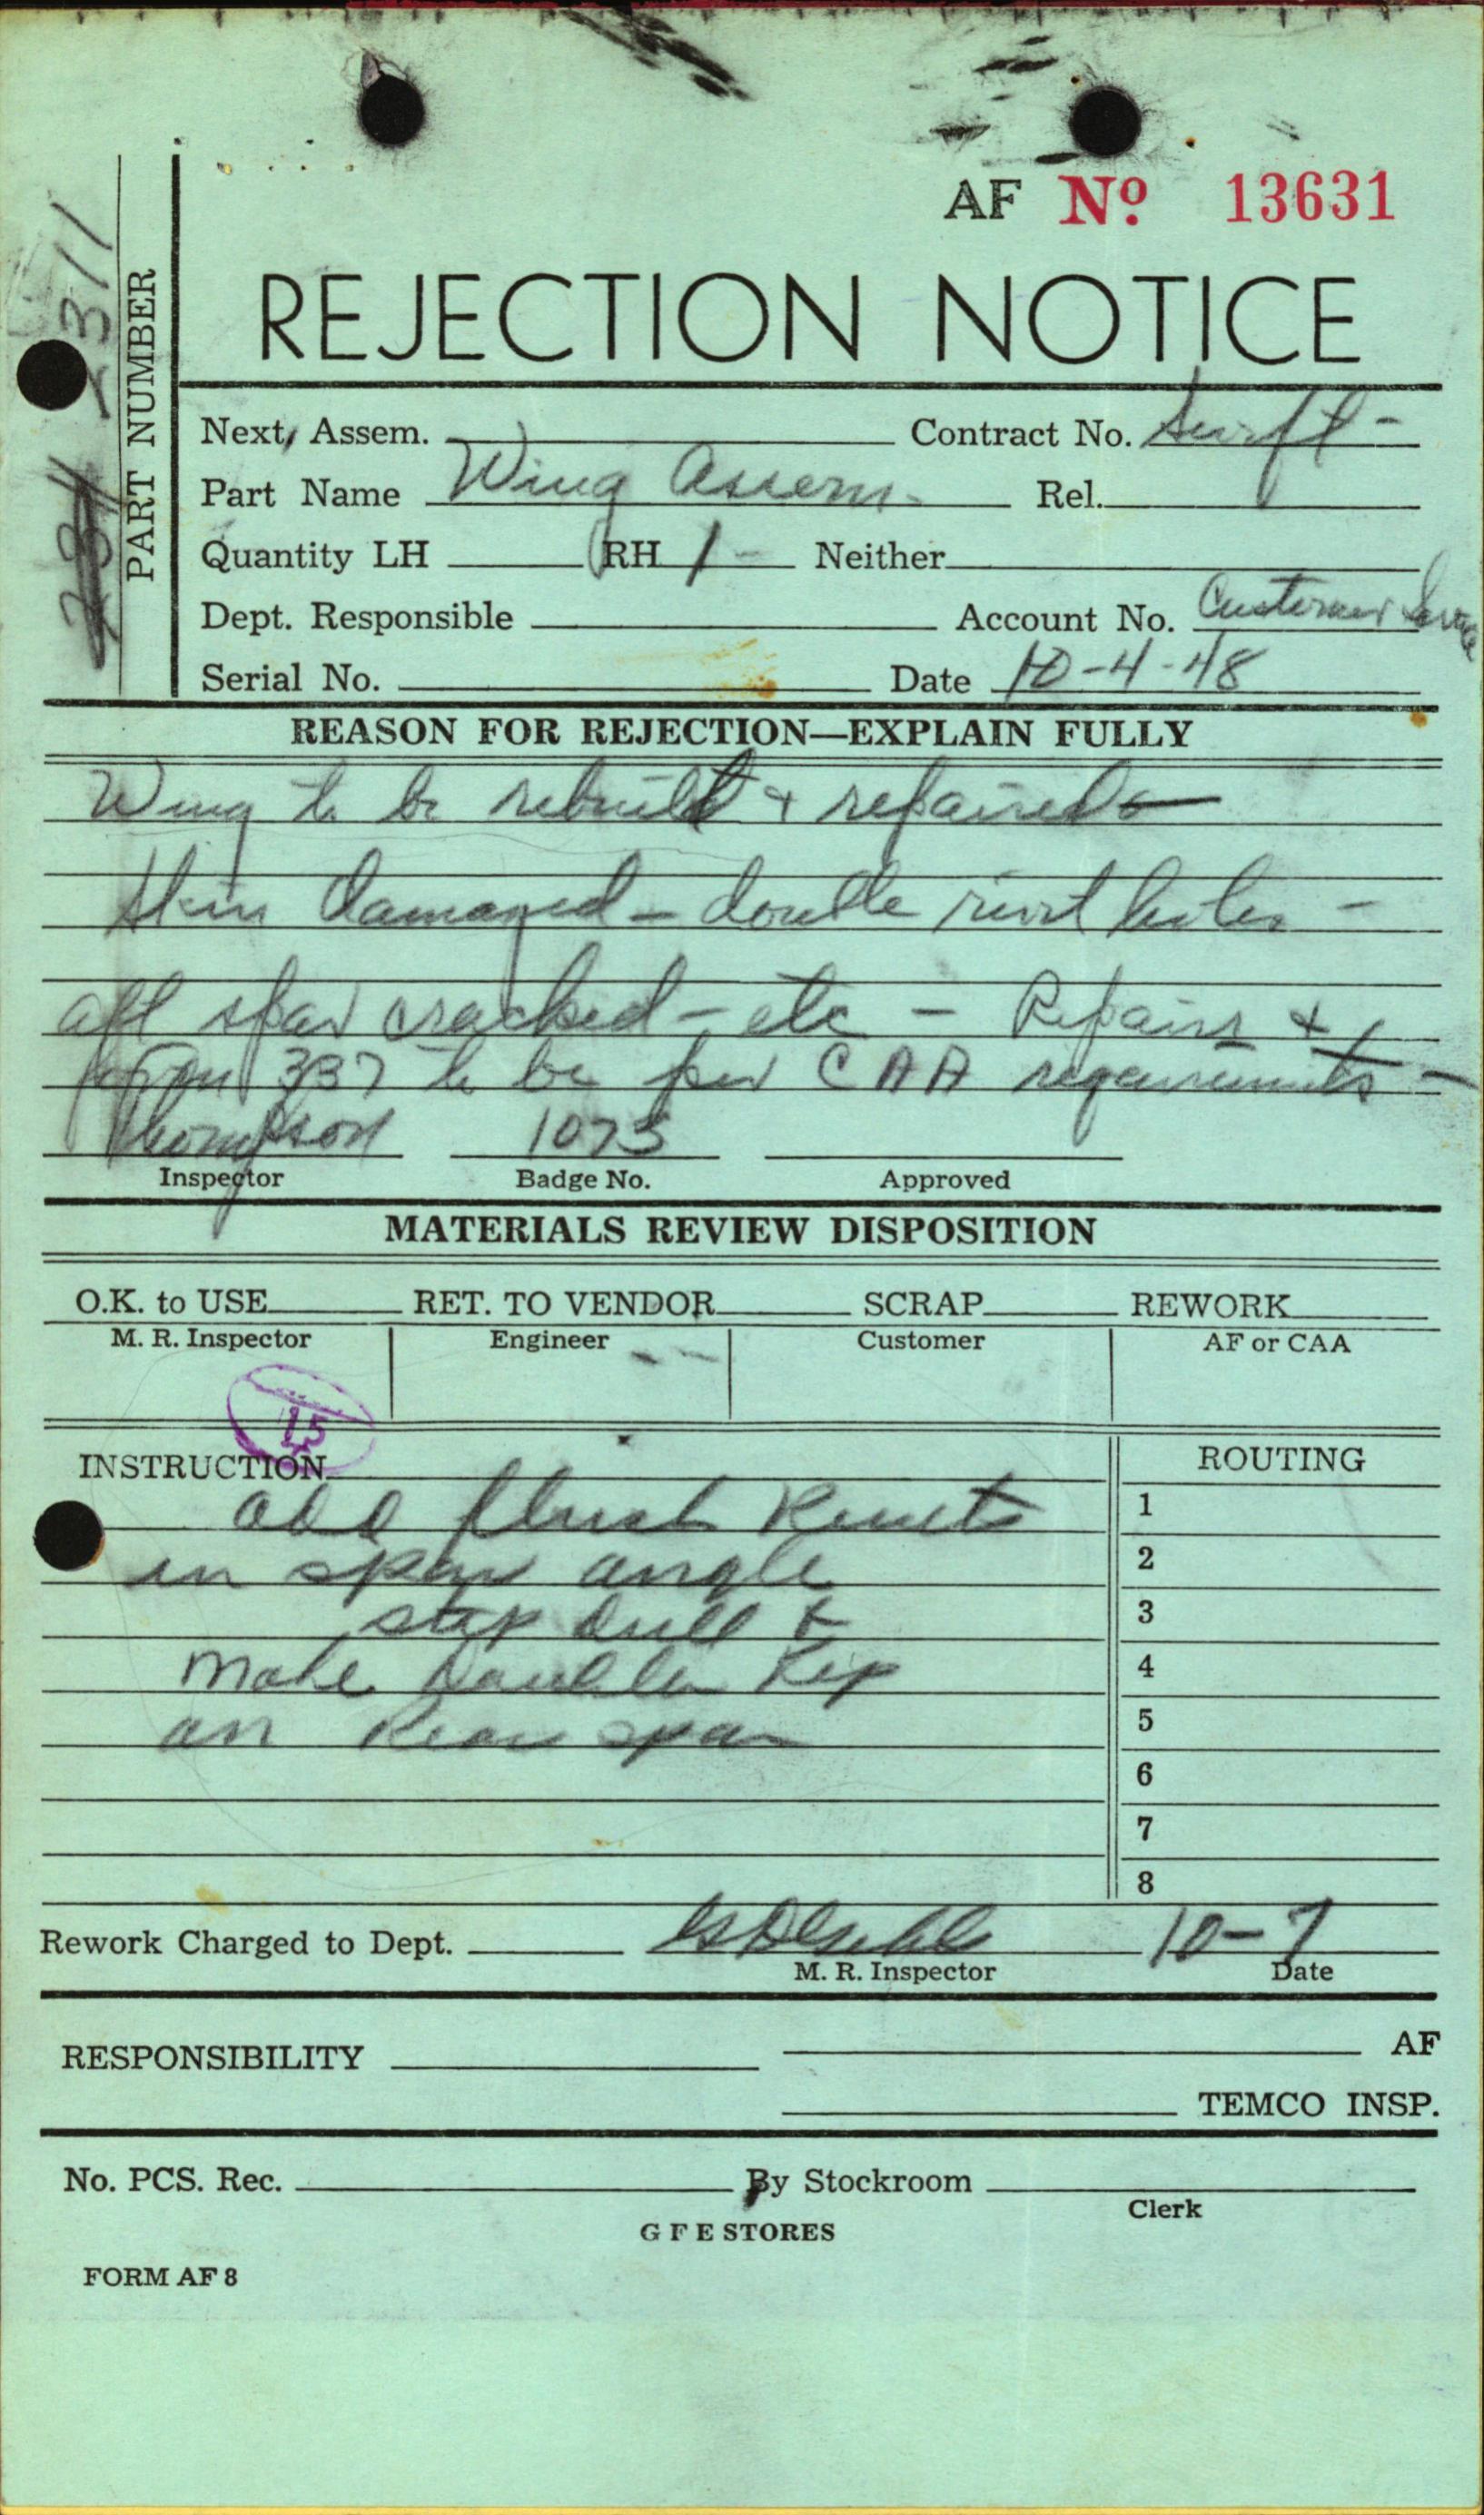 AF Nº 13631
REJECTION NOTICE
PART NUMBER 2311
Next, Assem. Contract No. Swift -
Part Name Wing Assem. Rel.
Quantity LH RH 1 - Neither
Dept. Responsible Account No. Customer Service
Serial No. Date 10-4-48
REASON FOR REJECTION—EXPLAIN FULLY
Wing to be rebuilt + repaired -
Skin damaged - double rivet holes -
aft spar cracked - etc - Repairs +
form 337 to be per CAA requirements -
Thompson 1075
Inspector Badge No. Approved
MATERIALS REVIEW DISPOSITION
O.K. to USE RET. TO VENDOR SCRAP REWORK
M. R. Inspector Engineer Customer AF or CAA
15
INSTRUCTION ROUTING
add flush Rivets 1
in spar angle 2
stop drill & 3
make Doubler Rep 4
on Rear spar 5
6
7
8
Rework Charged to Dept. 10-7
M. R. Inspector Date
RESPONSIBILITY AF
TEMCO INSP.
No. PCS. Rec. By Stockroom
Clerk
G F E STORES
FORM AF 8